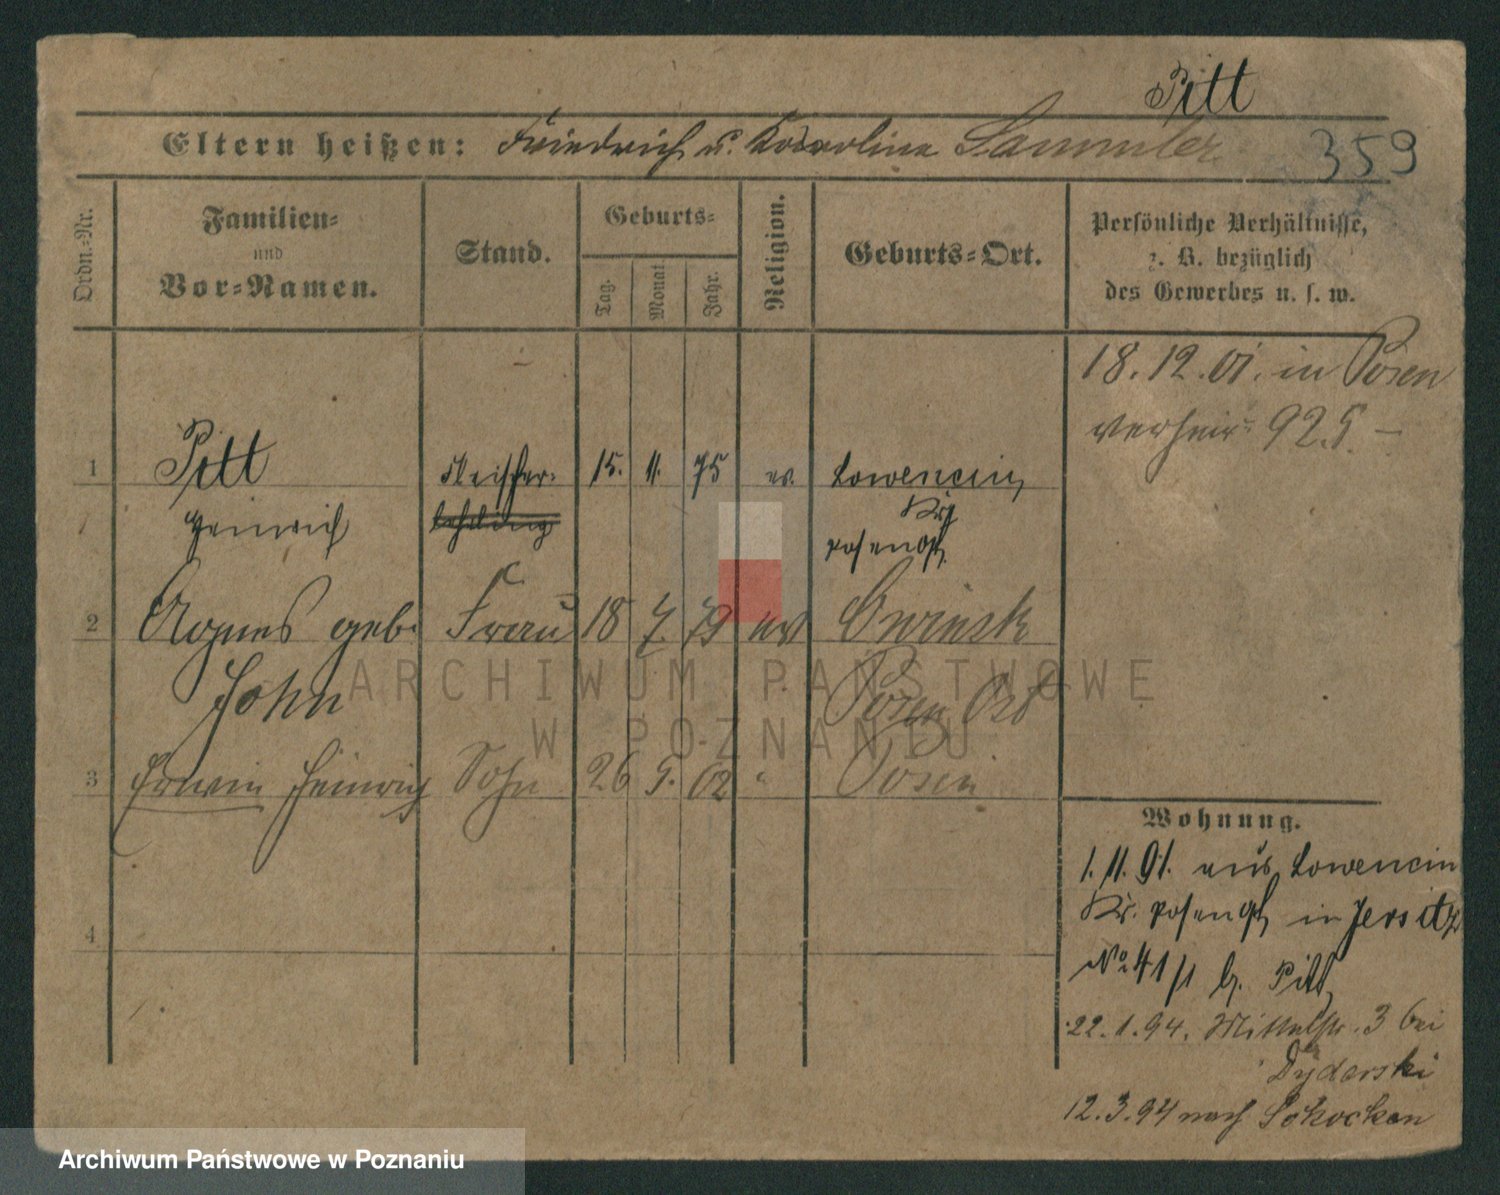 Pitt
Eltern heißen: Friedrich u. Karoline Sammler
359
Ordn.-Nr.
Familien-
und
Vor-Namen.
Stand.
Geburts-
Tag.
Monat
Jahr.
Religion.
Geburts-Ort.
Persönliche Verhältnisse,
z. B. bezüglich
des Gewerbes u. s. w.
18.12.01. in Posen
verheir. 925 –
1 Pitt Fleischer- 15. 11. 75 ev. Lowencin
Heinrich lehrling Kr.
Posen Ost
2 Agnes geb. Frau 18 7. 79 ev Owinsk
John Posen Ost
3 Erwin Heinrich Sohn 26 9. 02 " Posen
4
Wohnung.
1. 11. 91. aus Lowencin
Kr. Posen Ost in Jersitz
No 41/1 b. Pitt
22. 1. 94. Mittelstr. 3 bei
Dyderski
12. 3. 94 nach Schocken
ARCHIWUM PAŃSTWOWE
W POZNANIU
Archiwum Państwowe w Poznaniu